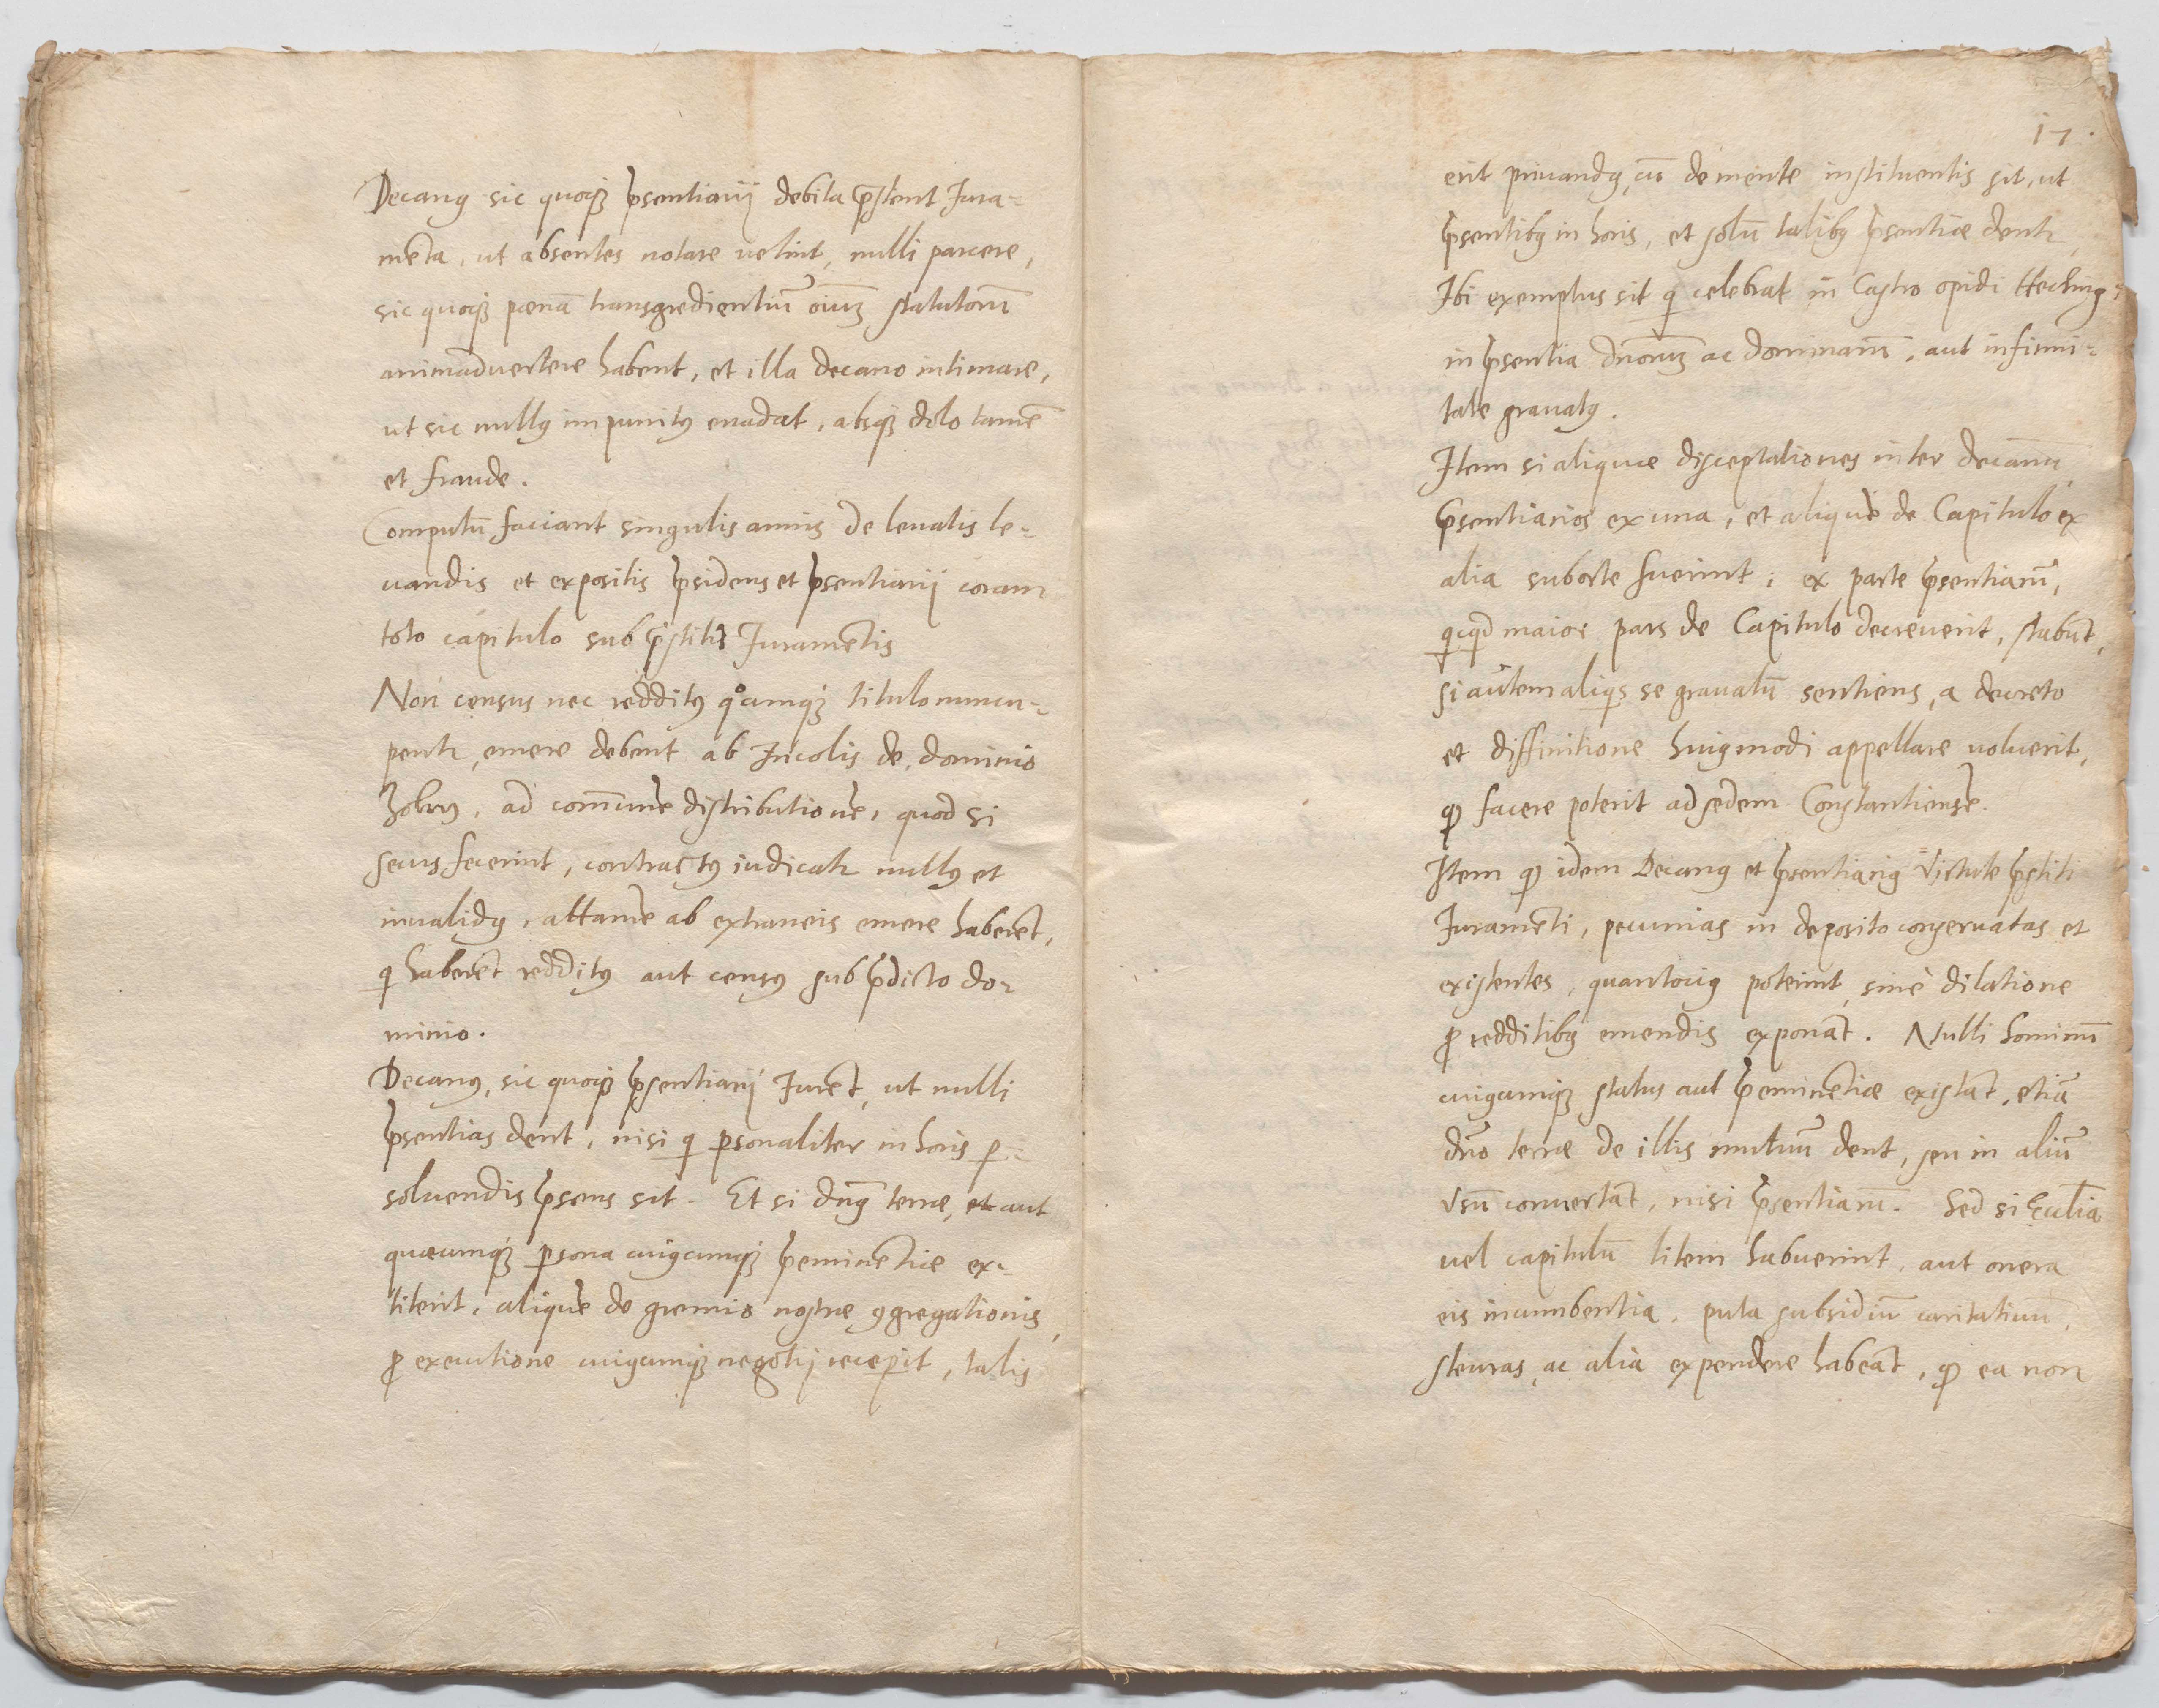 Decanꝰ sic quoqꝫ p̄sentiarij debita p̄stent Jura-
mēta, ut absentes notare uelint, nulli parcere,
sic quoqꝫ pœnā transgredientiū oīum statutorū
animaduertere habent, et illa decano intimare,
ut sic nullꝰ impunitꝰ euadat, absqꝫ dolo tamē
et fraude.
Computū faciant singulis annis de leuatis le-
uandis et expositis p̄sidens et p̄sentiarij coram
toto capitulo sub p̄stitis Juramētis
Non census nec redditꝰ qͦcumqꝫ titulo nuncu-
pentr, emere debent ab Incolis de dominio
Zolrꝰ, ad commune distributione, quod si
secus fecerint, contractꝰ iudicatr nullꝰ et
inualidꝰ, attamē ab extraneis emere haberēt,
qͥ haberēt redditꝰ aut censꝰ sub p̄dicto do-
minio.
Decanꝰ, sic quoqꝫ p̄sentiarij Jurēt, ut nulli
p̄sentias dent, nisi qͥ ꝑsonaliter in horis ꝑ-
soluendis p̄sens sit. Et si dn̄s terræ, et aut
quæcumqꝫ ꝑsona cuiꝰcumqꝫ p̄eminētiæ ex-
titerit, aliquē de gremio nostræ ꝯgregationis,
ꝓ executione cuiꝰcumqꝫ negotij receperit, talis
17.
erit priuandꝰ, cū de mente instituentis sit, ut
p̄sentibꝰ in horis, et solū talibꝰ p̄sentiæ dentr,
Ibi exemptus sit qͥ celebrat in Castro opidi Heching
in p̄sentia dn̄orum ac dominarū, aut infirmi-
tate grauatꝰ.
Item si aliquæ disceptationes inter decanū
p̄sentiarios ex una, et aliquē de Capitulo ex
alia suborte fuerint, ex parte p̄sentiarū,
qͥcqͥd maior pars de Capitulo decreuerit, stabūt,
si autem aliqͥs se grauatū sentiens, a decreto
et diffinitione huiꝰmodi appellare uoluerit,
ꝙ facere poterit ad sedem Constantiensē.
Item ꝙ idem Decanꝰ et p̄sentiariꝰ Virtute p̄stiti
Juramēti, pecunias in deposito conseruatas et
existentes, quantociꝰ poterint, sine dilatione
ꝓ redditibꝰ emendis exponāt. Nulli hominū
cuiꝰcumqꝫ status aut p̄eminētiæ existāt, etiā
dn̄o terræ de illis mutuū dent, seu in aliū
Vsū conuertāt, nisi p̄sentiarū. Sed si Eccl̄ia
uel capitulū litem habuerint, aut onera
eis incumbentia, puta subsidiū caritatiuū,
steuras, ac alia expendere habeāt, ꝙ ea non